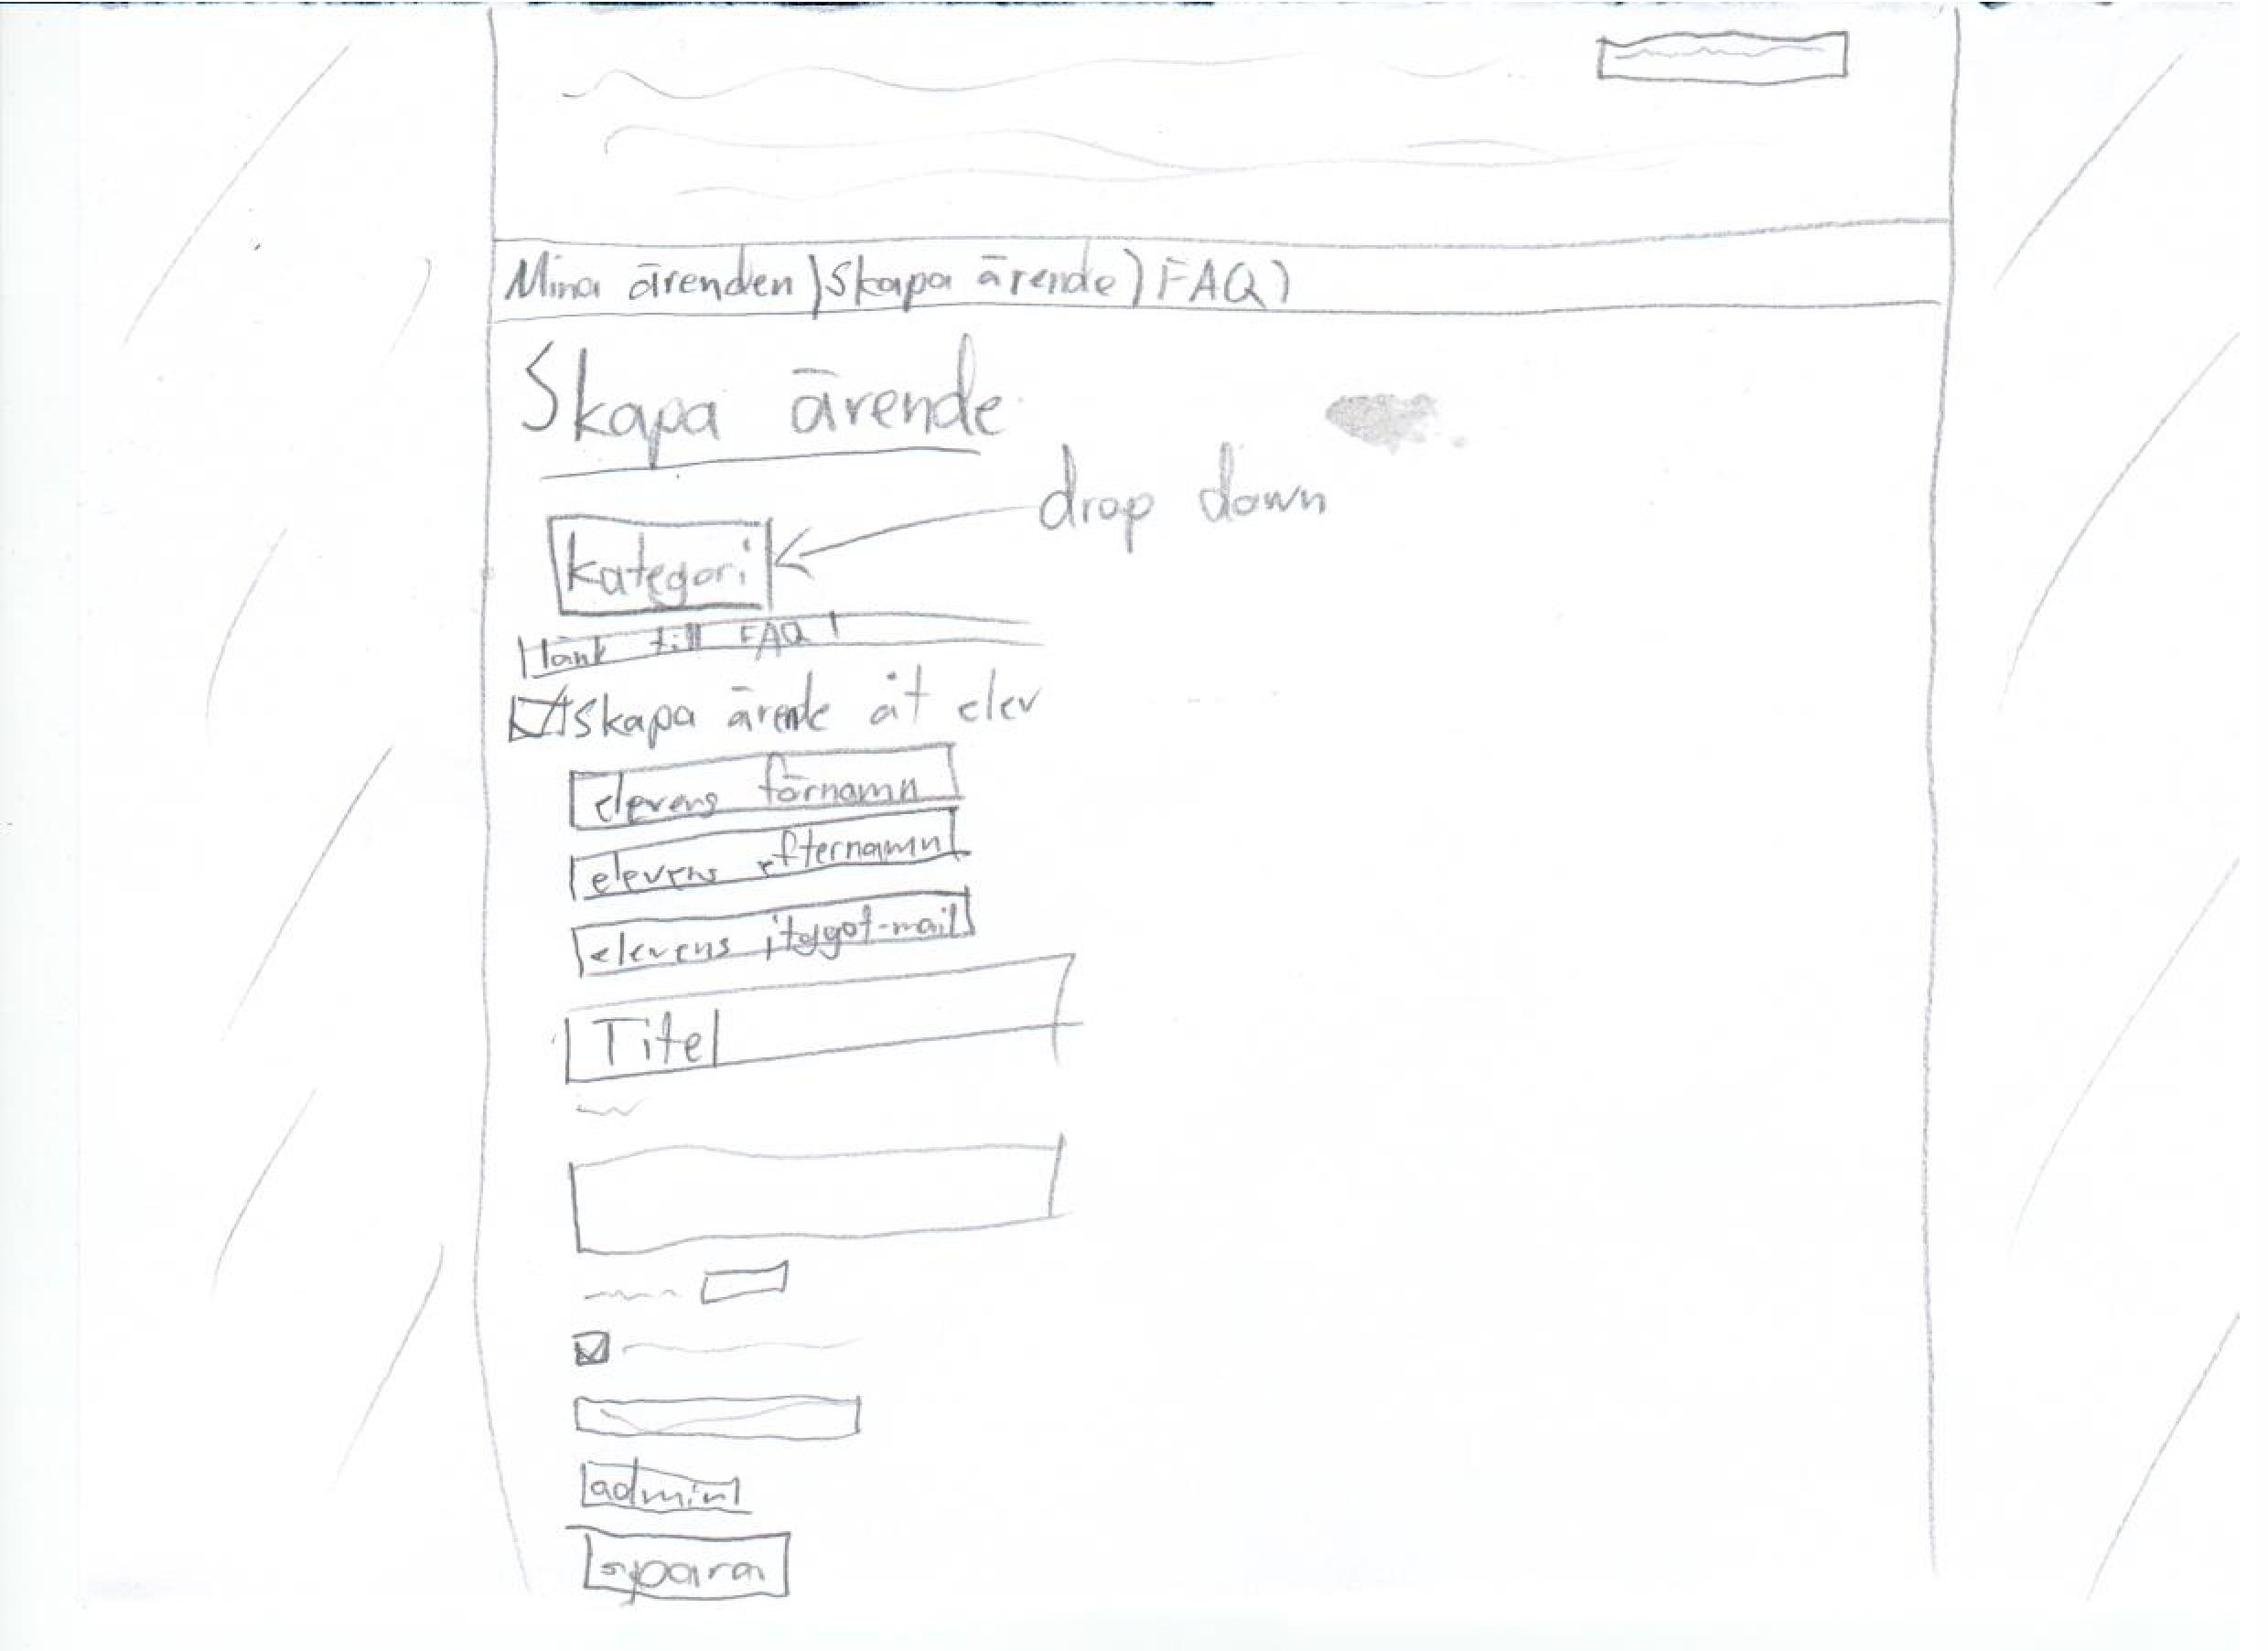 Mina ärenden Skapa ärende FAQ
Skapa ärende
drop down
kategori
länk till FAQ
Skapa ärende åt elev
elevens förnamn
elevens efternamn
elevens itggot-mail
Titel
admin
spara